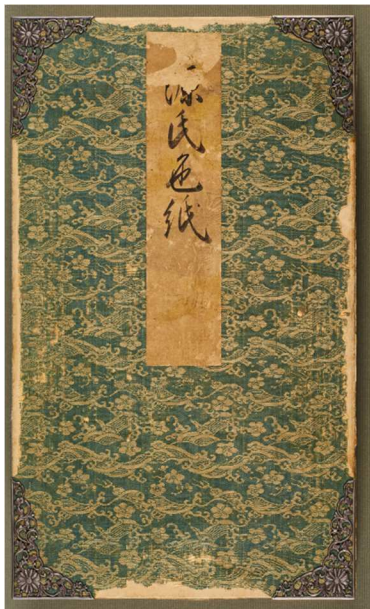 源氏色紙